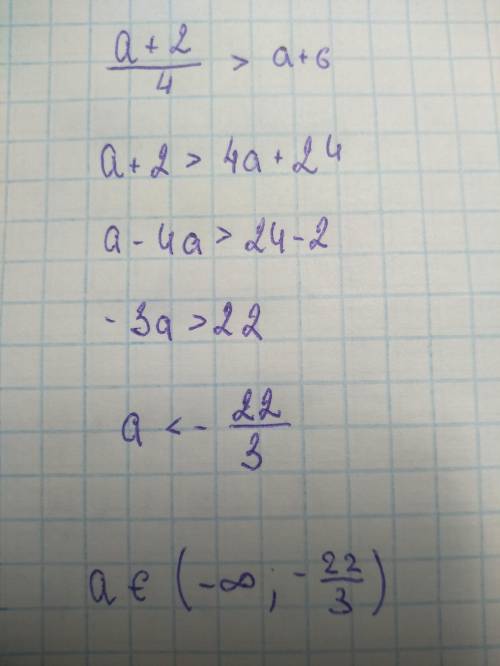 a + 2 / 4 > a + 6
a + 2 > 4a + 24
a - 4a > 24 - 2
- 3a > 22
a < - 22 / 3
a ∈ (-∞ ; - 22 / 3)